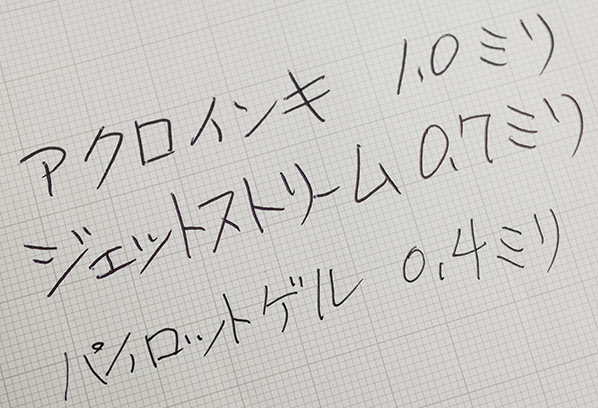 アクロインキ 1.0ミリ
ジェットストリーム 0.7ミリ
パイロットゲル 0.4ミリ